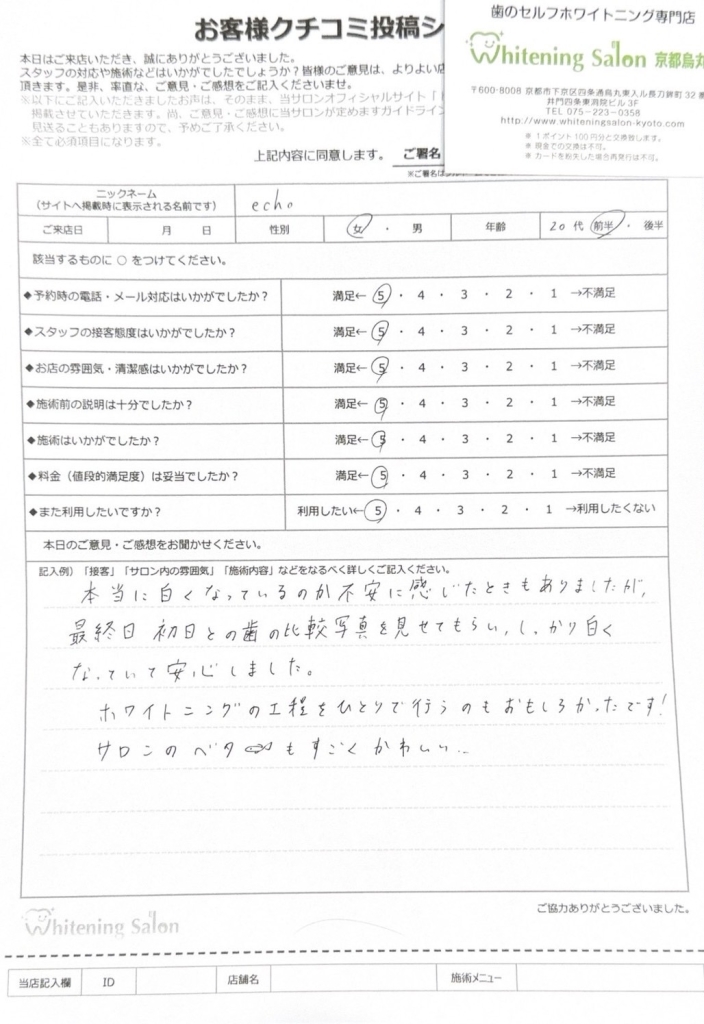 お客様クチコミ投稿シ
歯のセルフホワイトニング専門店
Whitening Salon 京都烏丸
〒600-8008 京都市下京区四条通烏丸東入ル長刀鉾町32番
井門四条東洞院ビル3F
TEL 075-223-0358
http://www.whiteningsalon-kyoto.com
※ 1ポイント100円分と交換致します。
※ 現金での交換は不可。
※ カードを紛失した場合再発行は不可。
本日はご来店いただき、誠にありがとうございました。
スタッフの対応や施術などはいかがでしたでしょうか？皆様のご意見は、よりよい店
頂きます。是非、率直な、ご意見・ご感想をご記入くださいませ。
※以下にご記入いただきましたお声は、そのまま、当サロンオフィシャルサイト「ト
掲載させていただきます。尚、ご意見・ご感想に当サロンが定めますガイドライン
見送ることもありますので、予めご了承ください。
※全て必須項目になります。
上記内容に同意します。 ご署名
ニックネーム
（サイトへ掲載時に表示される名前です） echo
ご来店日 月 日 性別 女 ・ 男 年齢 20 代 前半 ・ 後半
該当するものに ○ をつけてください。
◆予約時の電話・メール対応はいかがでしたか？ 満足← 5 ・ 4 ・ 3 ・ 2 ・ 1 →不満足
◆スタッフの接客態度はいかがでしたか？ 満足← 5 ・ 4 ・ 3 ・ 2 ・ 1 →不満足
◆お店の雰囲気・清潔感はいかがでしたか？ 満足← 5 ・ 4 ・ 3 ・ 2 ・ 1 →不満足
◆施術前の説明は十分でしたか？ 満足← 5 ・ 4 ・ 3 ・ 2 ・ 1 →不満足
◆施術はいかがでしたか？ 満足← 5 ・ 4 ・ 3 ・ 2 ・ 1 →不満足
◆料金（値段的満足度）は妥当でしたか？ 満足← 5 ・ 4 ・ 3 ・ 2 ・ 1 →不満足
◆また利用したいですか？ 利用したい← 5 ・ 4 ・ 3 ・ 2 ・ 1 →利用したくない
本日のご意見・ご感想をお聞かせください。
記入例）「接客」「サロン内の雰囲気」「施術内容」などをなるべく詳しくご記入ください。
本当に白くなっているのか不安に感じたときもありましたが、
最終日 初日との歯の比較写真を見せてもらい、しっかり白く
なっていて安心しました。
ホワイトニングの工程をひとりで行うのもおもしろかったです!
サロンのベタもすごくかわいい…
ご協力ありがとうございました。
Whitening Salon
当店記入欄 ID 店舗名 施術メニュー